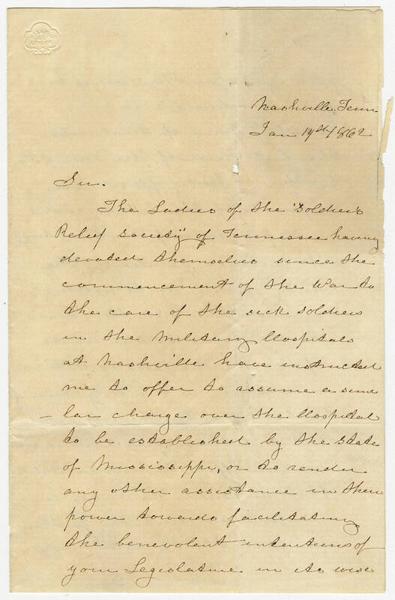 Nashville Tenn.
Jan 19th 1862
Sir.
The Ladies of the "Soldiers
Relief Society" of Tennessee having
devoted themselves since the
commencement of the War to
the care of the sick soldiers
in the Military Hospitals
at Nashville have instructed
me to offer to assume a simi
-lar charge over the Hospital
to be established by the State
of Mississippi, or to render
any other assistance in their
power towards facilitating
the benevolent intentions of
your Legislature in its wise